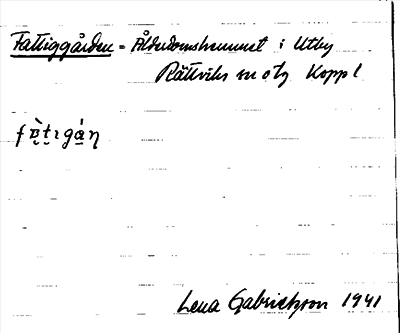 Fattiggården = Ålderdomshemmet i Utby
Rättviks sn o tg Koppl
Lena Gabrielsson 1941